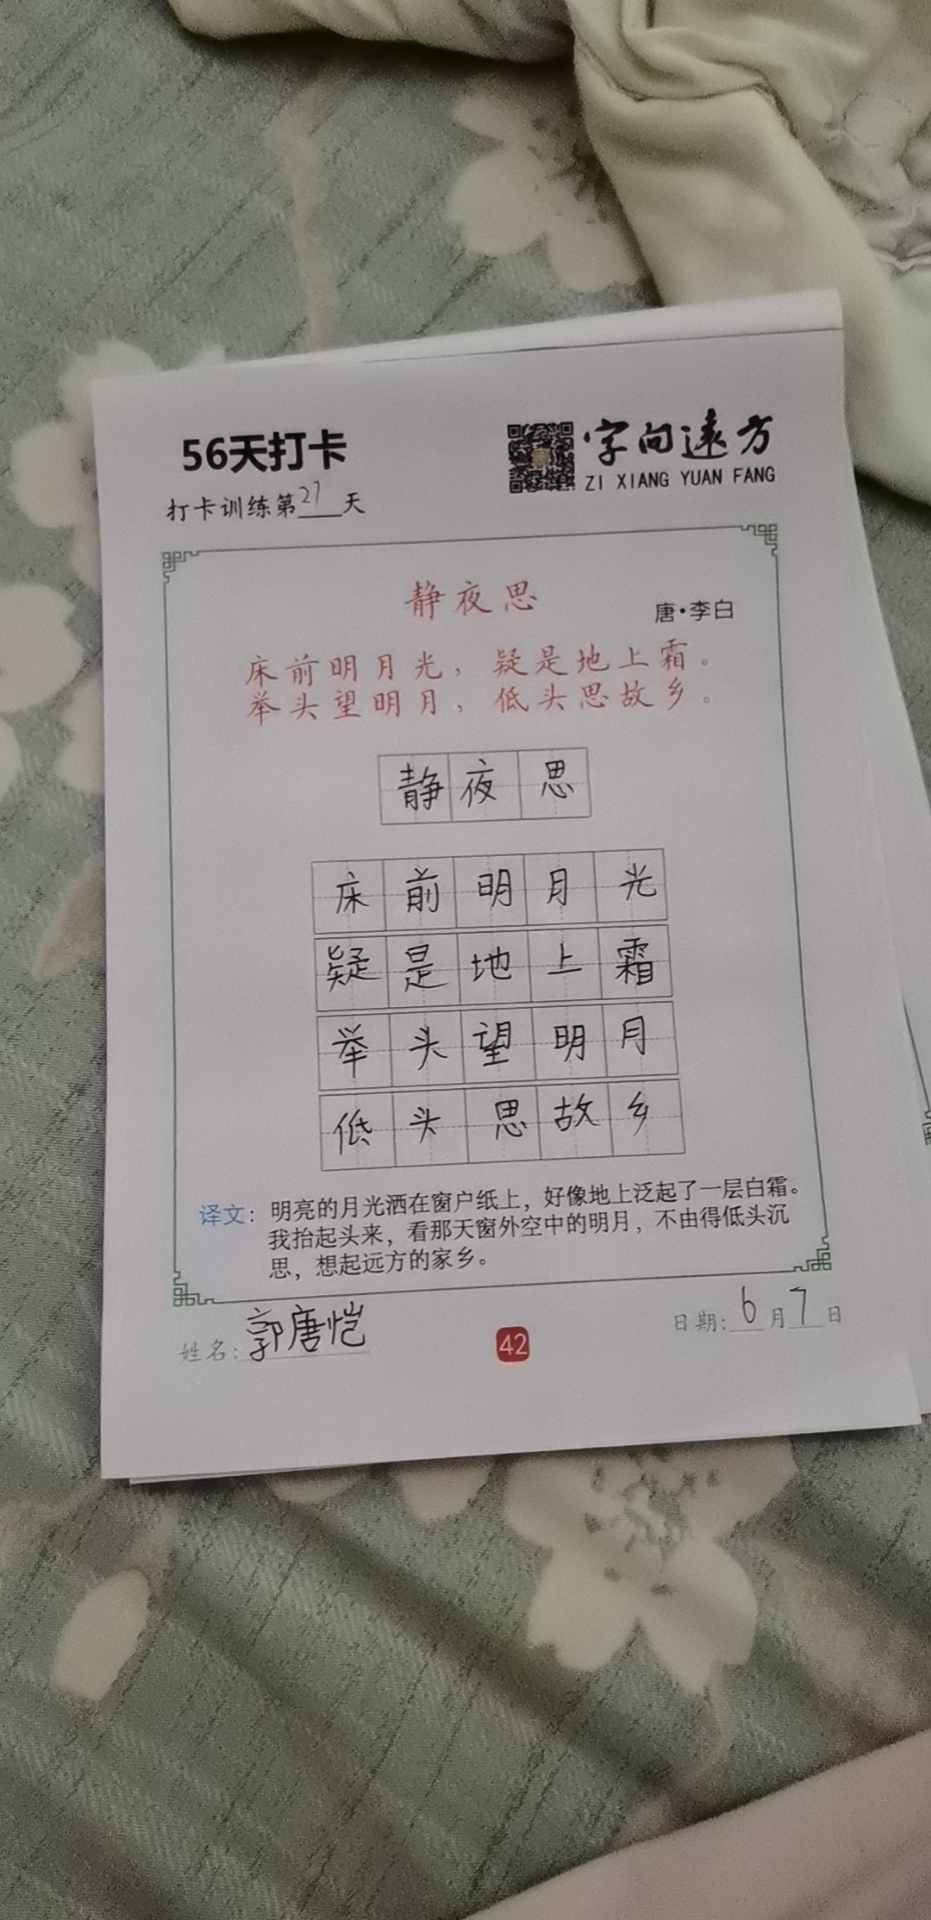 56天打卡
字向远方
ZI XIANG YUAN FANG
打卡训练第27天
静夜思
唐·李白
床前明月光，疑是地上霜。
举头望明月，低头思故乡。
静夜思
床前明月光
疑是地上霜
举头望明月
低头思故乡
译文：明亮的月光洒在窗户纸上，好像地上泛起了一层白霜。
我抬起头来，看那天窗外空中的明月，不由得低头沉
思，想起远方的家乡。
姓名：郭唐恺
42
日期：6月7日